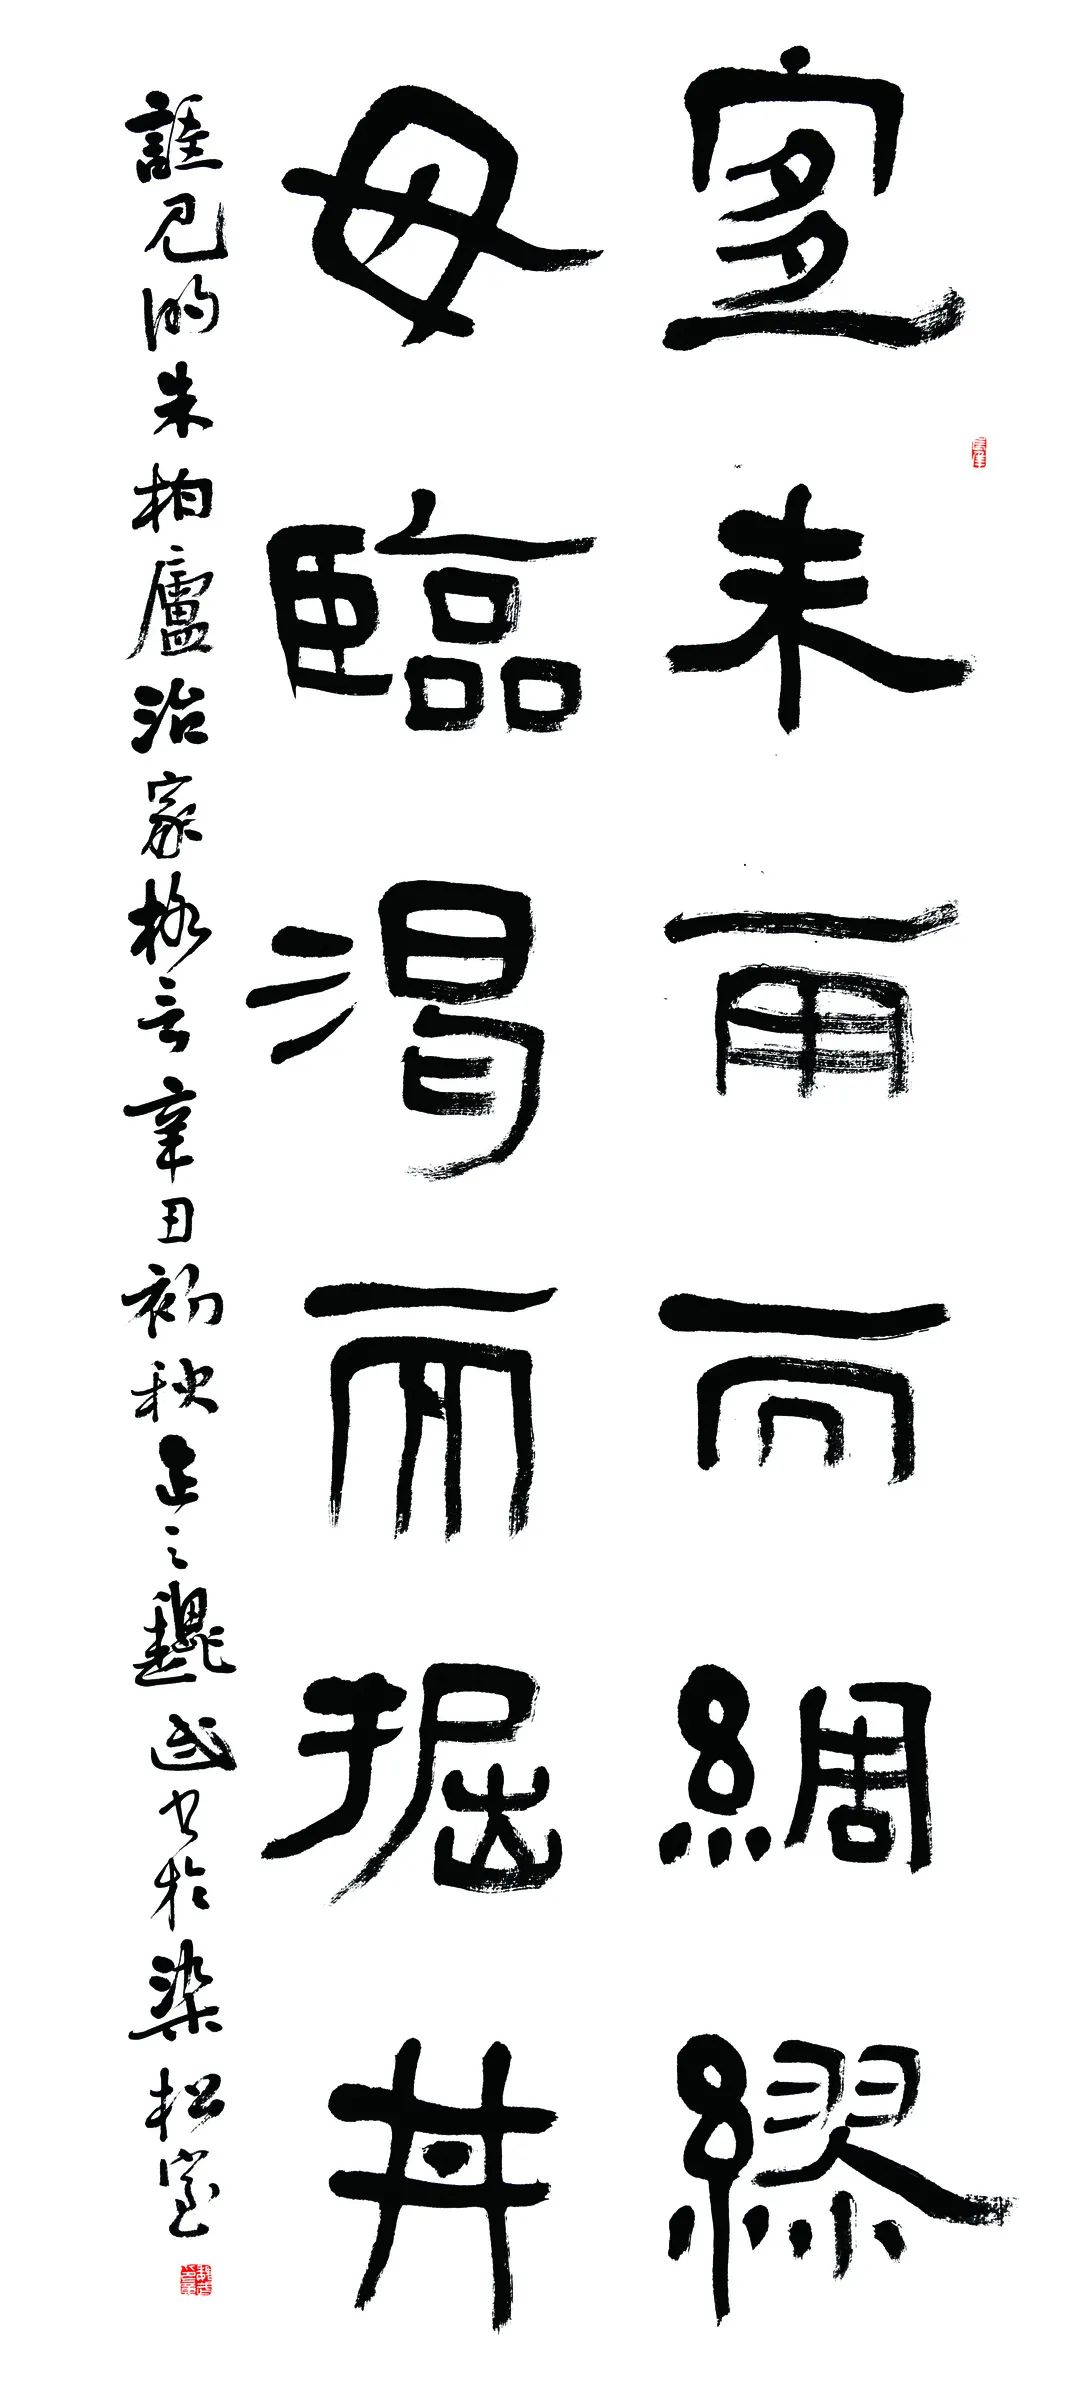 宜未雨而綢繆
毋臨渴而掘井
語見明朱柏廬治家格言辛丑初秋正之魏武书於染松堂